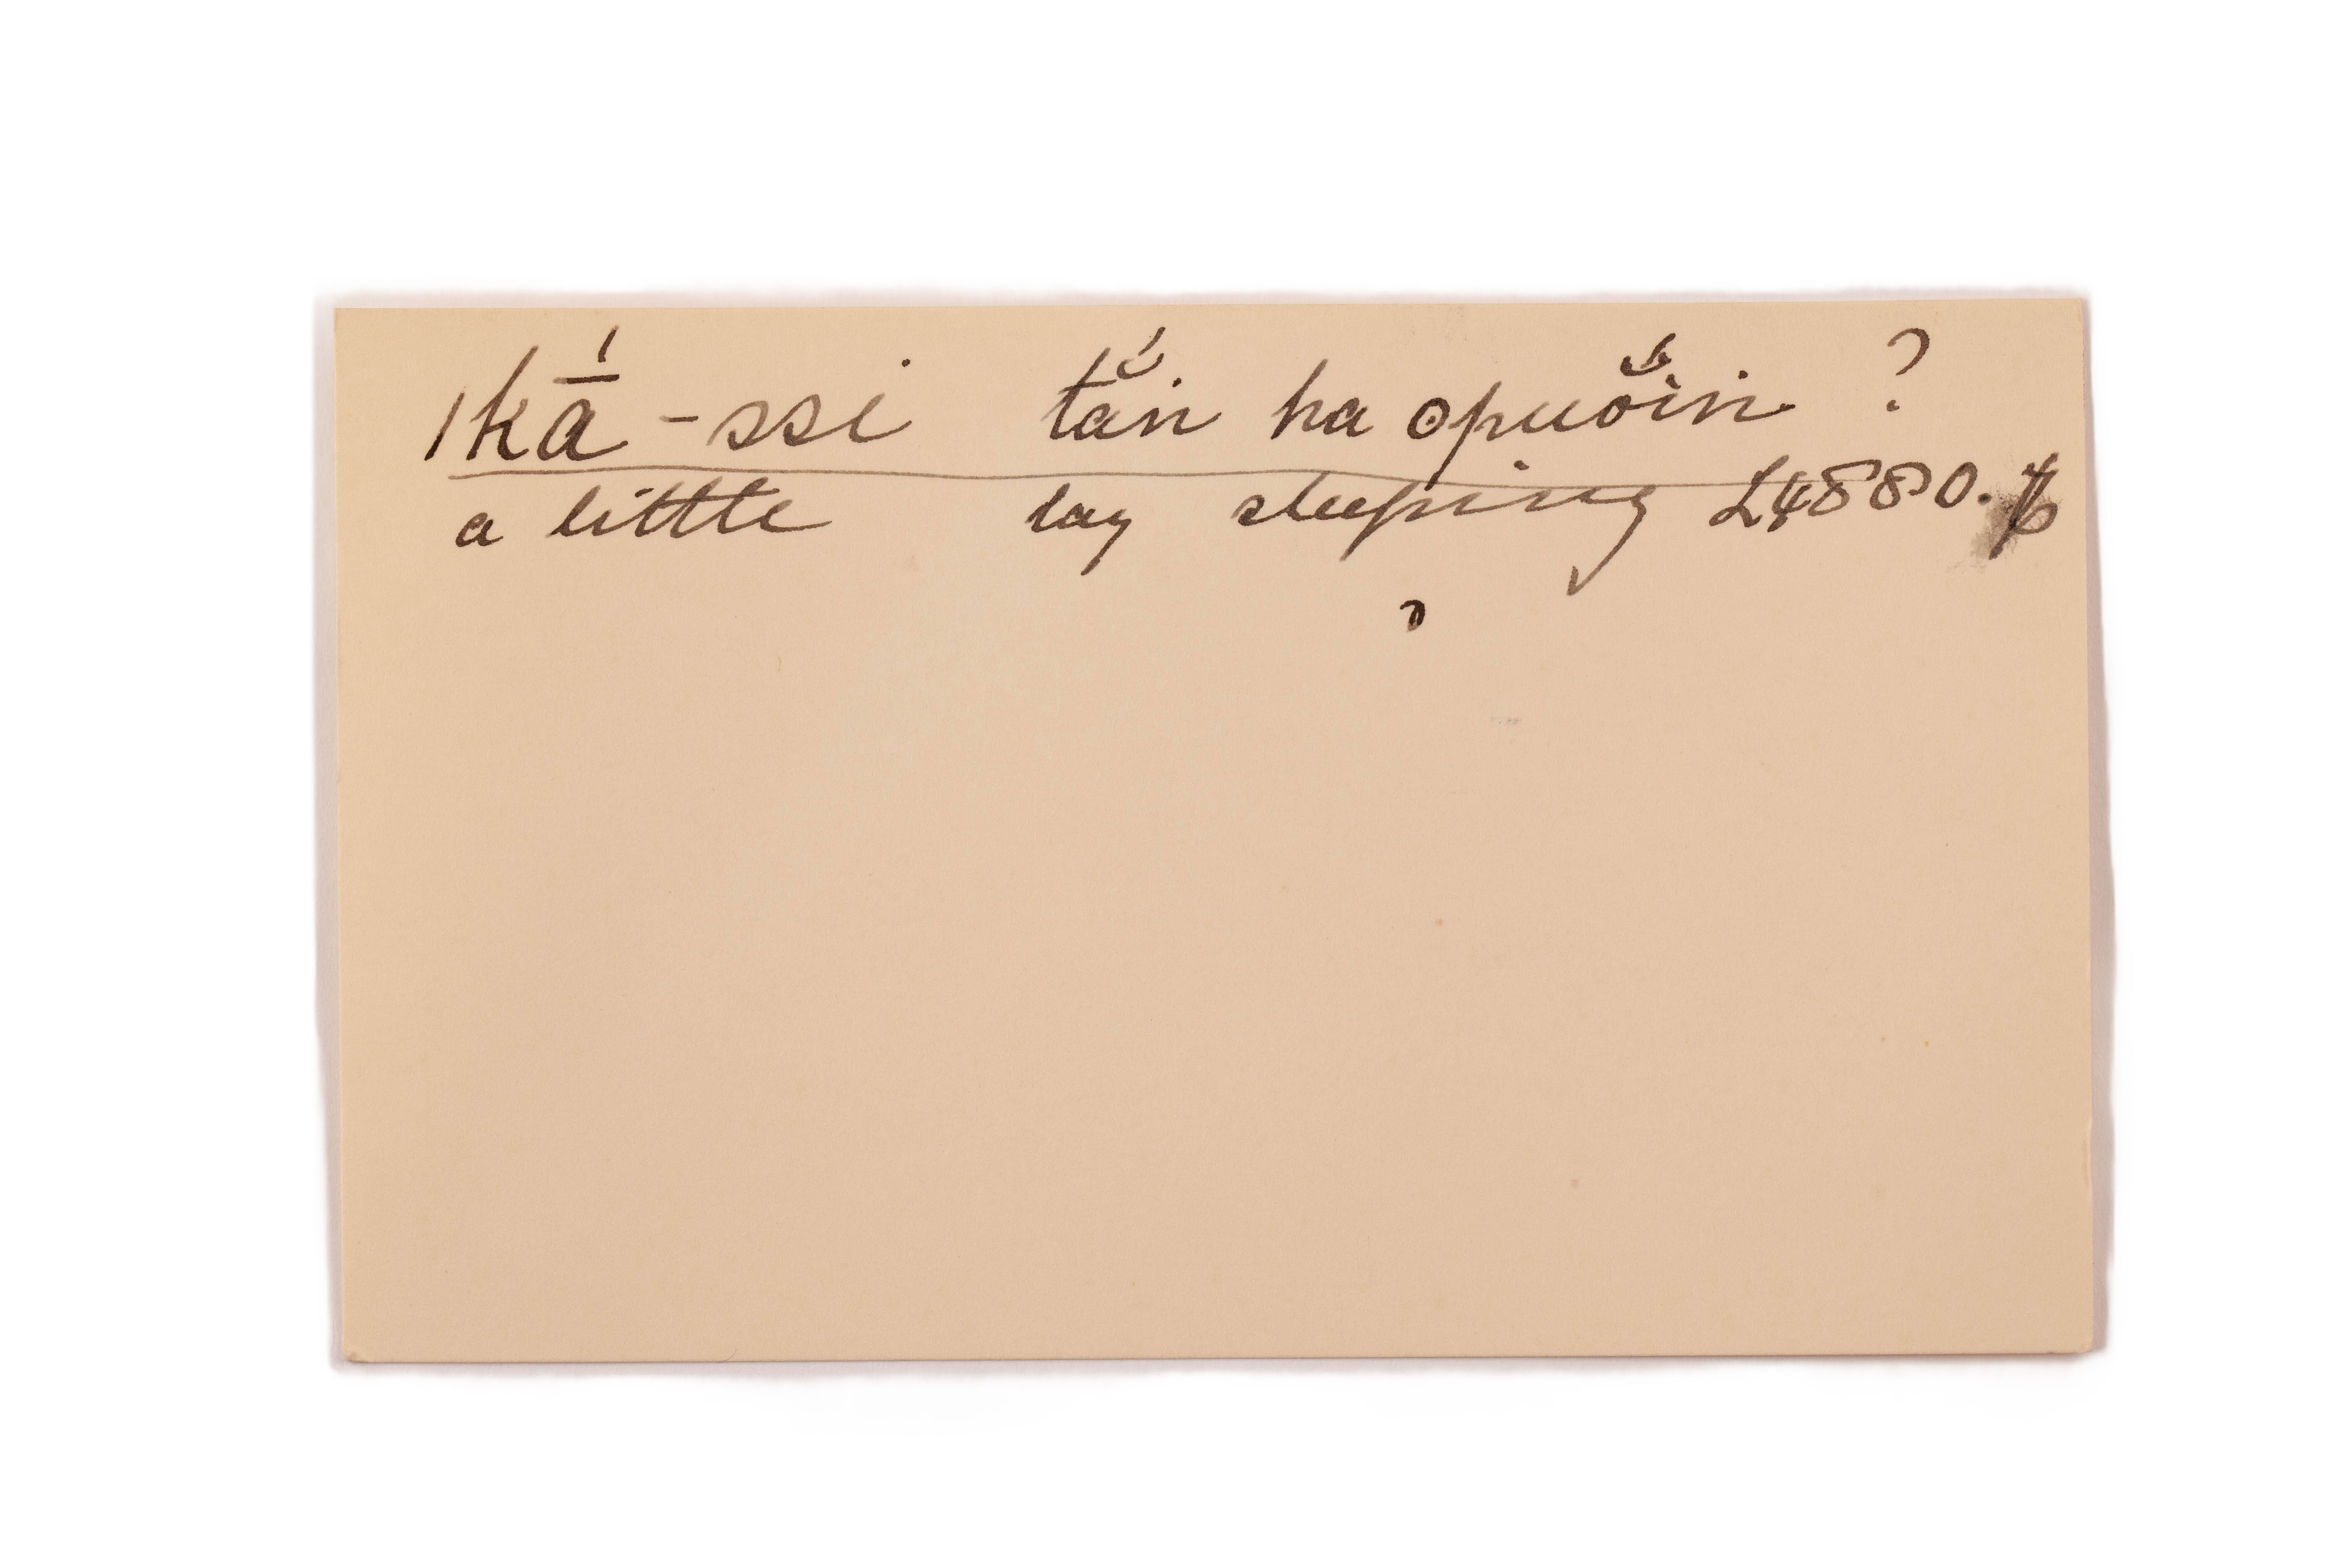 ꞁkā́-ssi tắn ha opuŏ́in ?
a little lay sleeping L4880.